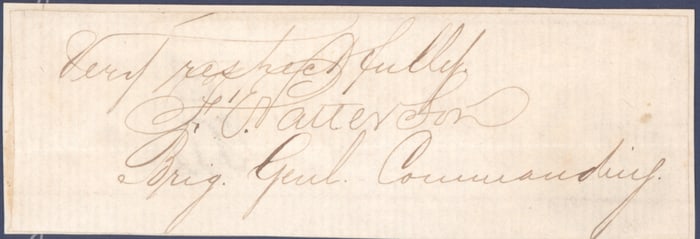 Very respectfully.
F. Patterson
Brig. Genl. Commanding.